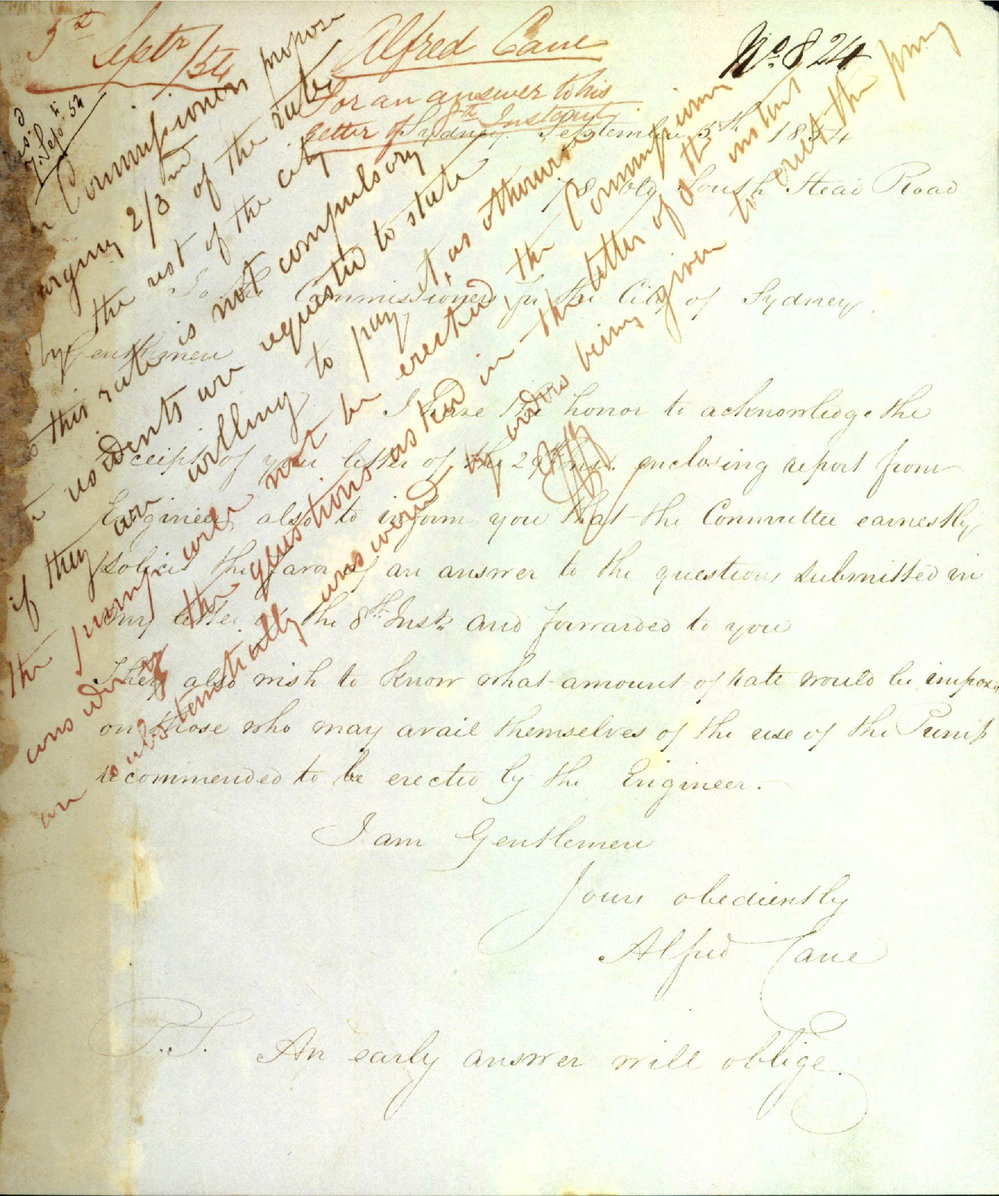 5th Septr/54
Alfred Cane
for an answer to his
letter of 8th Inst
No. 824
7 Sept 54
Sydney September 5th 1854
78 Old South Head Road
To the Commissioners for the City of Sydney.
Gentlemen
I have the honor to acknowledge the
receipt of your letter of the 29th Inst. enclosing report from
Engineer, also to inform you that the Committee earnestly
solicit the favor of an answer to the questions submitted in
my letter of the 8th Inst. and forwarded to you
They also wish to know what amount of rate would be impos
on those who may avail themselves of the use of the Pump
recommended to be erected by the Engineer.
I am Gentlemen
Yours obediently
Alfred Cane
P.S. An early answer will oblige.
Commissioners propose
charging 2/3rd of the rate
the rest of the city
this rate is not compulsory
residents are requested to state
if they are willing to pay it, as otherwise
the pump will not be erected, the Commissioners
consider the questions asked in the letter of 8th instant
are substantially answered by orders being given to erect the pump